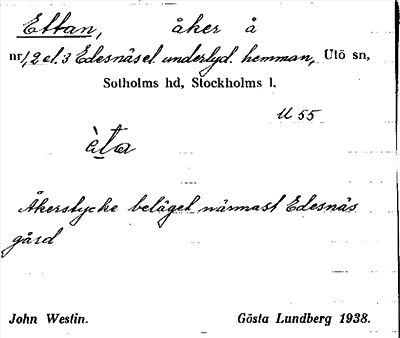 Ettan, åker å
nr 1, 2 el. 3 Edesnäs el. underlyd. hemman, Utö sn,
Sotholms hd, Stockholms l.
U 55
èta
Åkerstycke beläget närmast Edesnäs
gård
John Westin. Gösta Lundberg 1938.